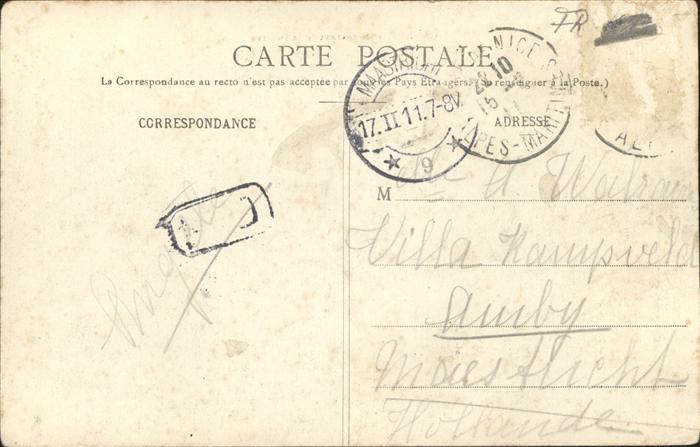 FR
CARTE POSTALE
La Correspondance au recto n'est pas acceptée par tous les Pays Étrangers. (Se renseigner à la Poste.)
CORRESPONDANCE
ADRESSE
NICE
ALPES-MARITIMES
17.II 11.7-8V
9
M
Villa Kampveld
Amby
Maestricht
Hollande